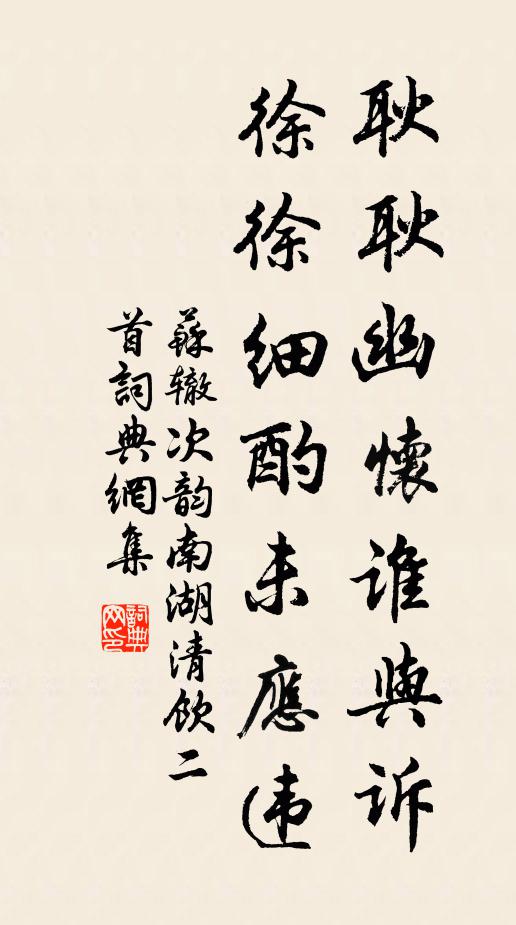 耿耿幽懷谁與诉
徐徐细酌未應违
蘇辙次韵南湖清饮二
首詞典網集
詞典网印